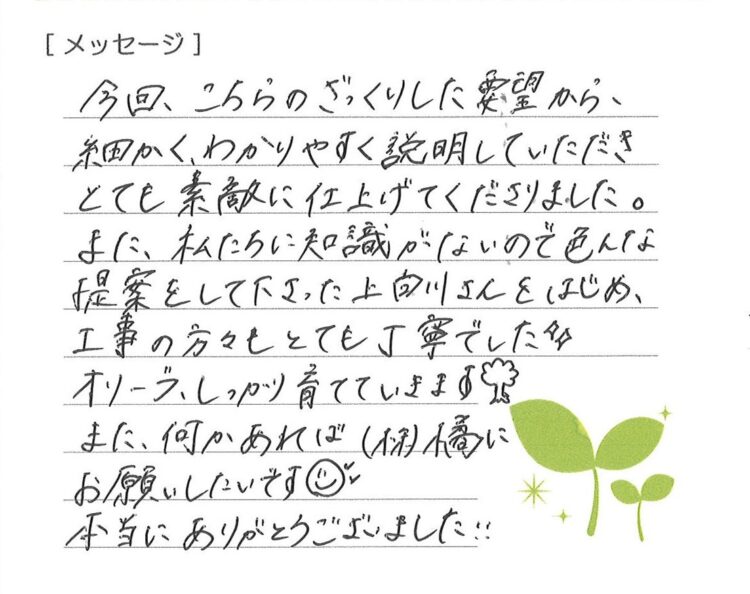 [メッセージ]
今回、こちらのざっくりした要望から、
細かく、わかりやすく説明していただき
とても素敵に仕上げてくださりました。
また、私たちに知識がないので色んな
提案をして下さった上向川さんをはじめ、
工事の方々もとても丁寧でした
オリーブ、しっかり育てていきます
また、何かあれば(株)橘に
お願いしたいです
本当にありがとうございました!!